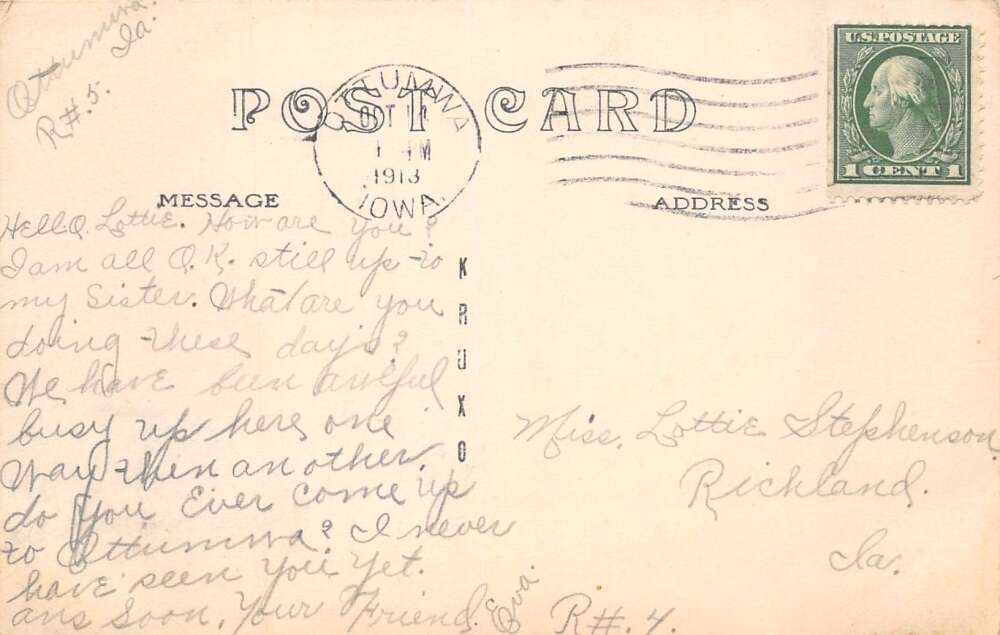 Ottumwa.
Ia.
R#. 5.
POST CARD
OTTUMWA
OCT
1 PM
1913
IOWA.
U.S. POSTAGE
1 CENT 1
MESSAGE
ADDRESS
Hello. Lottie. How are you?
I am all O.K. still up to
my Sister. What are you
doing these days?
We have been awful
busy up here one
way then another.
do you Ever come up
to Ottumwa? I never
have seen you yet.
ans soon, Your Friend. Eva.
KRUXO
Miss. Lottie Stephenson
Richland.
Ia.
R#. 4.